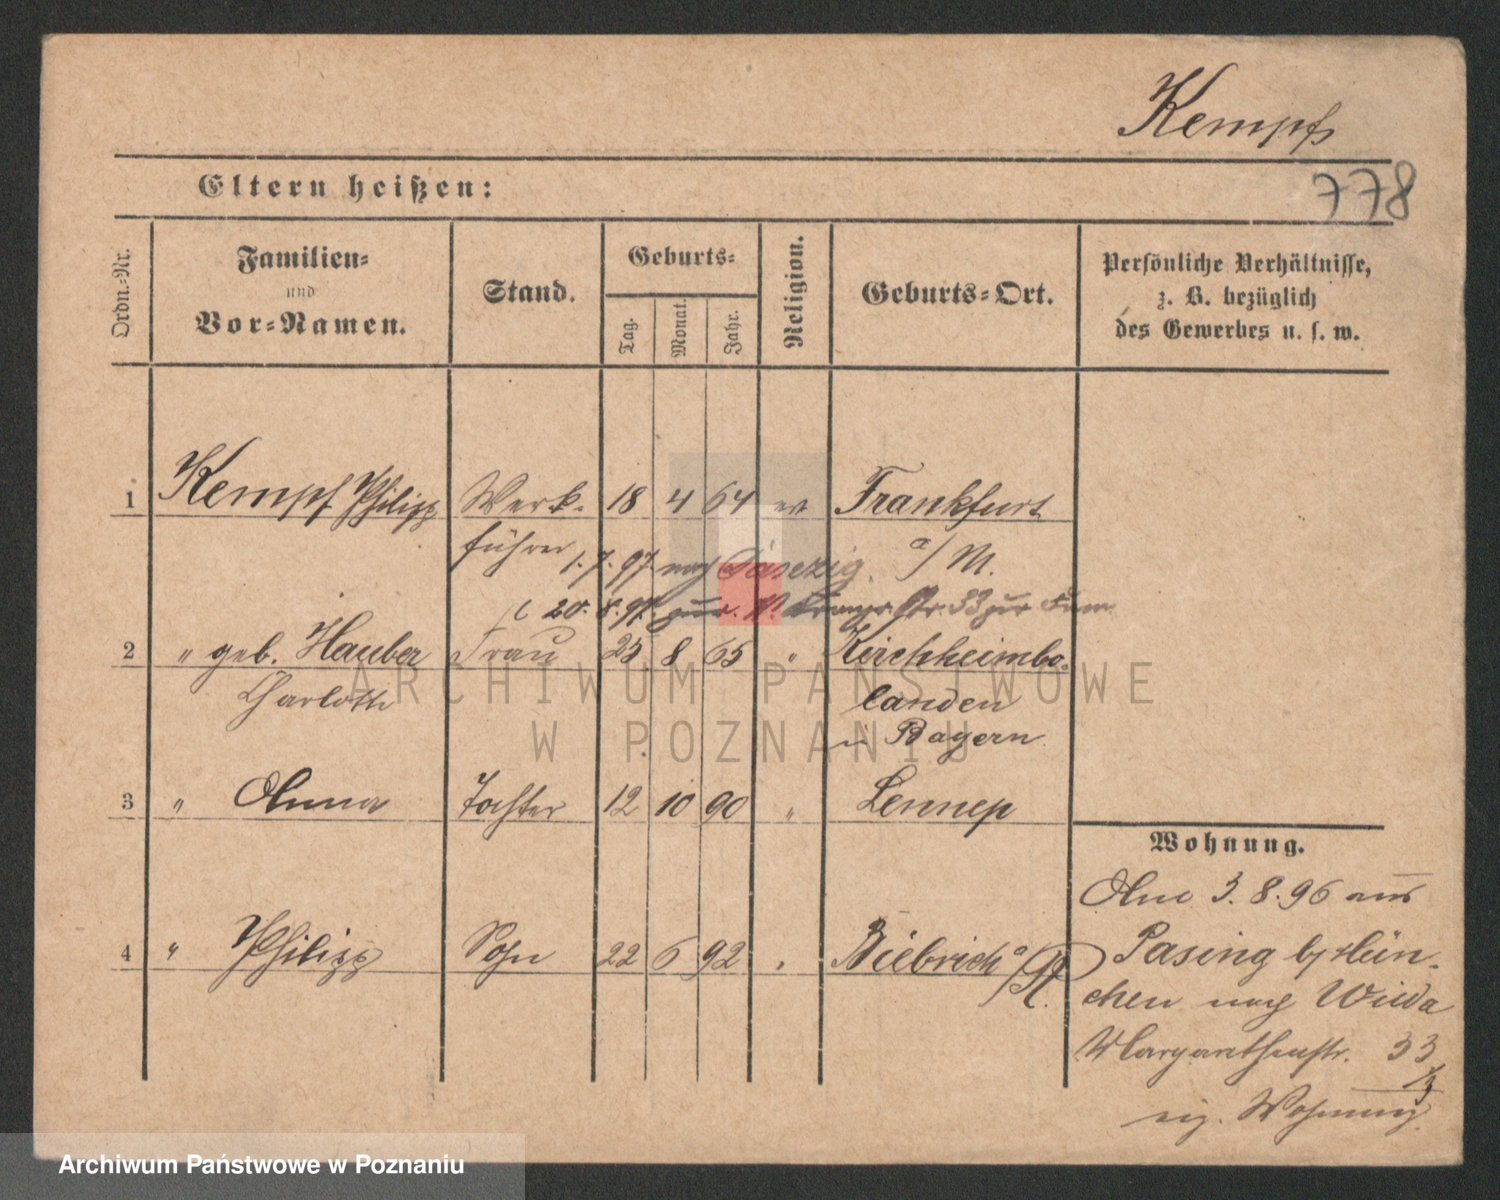 Kempf
778
Eltern heißen:
Ordn.-Nr.
Familien-
und
Vor-Namen.
Stand.
Geburts-
Tag.
Monat.
Jahr.
Religion.
Geburts-Ort.
Persönliche Verhältnisse,
z. B. bezüglich
des Gewerbes u. s. w.
1 Kempf Philipp Werk- 18 4 64 ev Frankfurt
führer a/M.
1.7.97 nach Danzig.
20.8.97 zur. Str. 33 zur Fam
2 " geb. Hauber Frau 23 8 65 " Kirchheimbo-
Charlotte landen
in Bayern
3 " Anna Tochter 12 10 90 " Lennep
4 " Philipp Sohn 22 6 92 " Biebrich a/R.
Wohnung.
Anm 3.8.96 aus
Pasing b/Mün-
chen nach Wilda
Margarethenstr. 33
eig. Wohnung.
ARCHIWUM PAŃSTWOWE
W POZNANIU
Archiwum Państwowe w Poznaniu